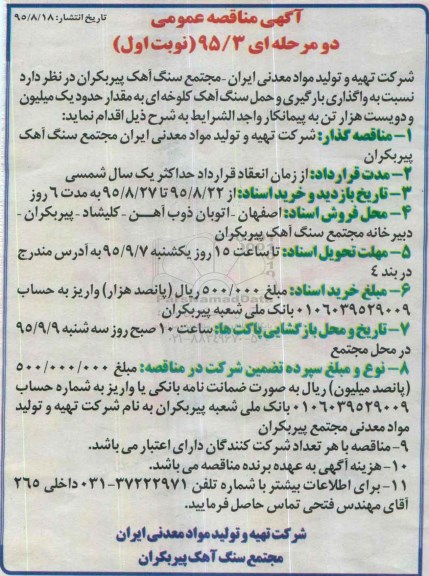 تاریخ انتشار: ۹۵/۸/۱۸
آگهی مناقصه عمومی
دو مرحله ای ۹۵/۳ (نوبت اول)
شرکت تهیه و تولید مواد معدنی ایران -مجتمع سنگ آهک پیربکران در نظر دارد
نسبت به واگذاری بارگیری و حمل سنگ آهک کلوخه ای به مقدار حدود یک میلیون
و دویست هزار تن به پیمانکار واجد الشرایط به شرح ذیل اقدام نماید:
۱- مناقصه گذار: شرکت تهیه و تولید مواد معدنی ایران مجتمع سنگ آهک
پیربکران
۲- مدت قرارداد: از زمان انعقاد قرارداد حداکثر یک سال شمسی
۳- تاریخ بازدید و خرید اسناد: از ۹۵/۸/۲۲ تا ۹۵/۸/۲۷ به مدت ۶ روز
۴- محل فروش اسناد: اصفهان - اتوبان ذوب آهـن - کلیشاد - پیربکران -
دبیرخانه مجتمع سنگ آهک پیربکران
۵- مهلت تحویل اسناد: تا ساعت ۱۵ روز یکشنبه ۹۵/۹/۷ به آدرس مندرج
در بند ٤
۶- مبلغ خرید اسناد: مبلغ ۵۰۰/۰۰۰ ریال (پانصد هزار) واریز به حساب
۰۱۰۶۰۳۹۵۲۹۰۰۹ بانک ملی شعبه پیربکران
۷- تاریخ و محل بازگشایی پاکت ها: ساعت ۱۰ صبح روز سه شنبه ۹۵/۹/۹
در محل مجتمع
۸- نوع و مبلغ سپرده تضمین شرکت در مناقصه: مبلغ ۵۰۰/۰۰۰/۰۰۰
(پانصد میلیون) ریال به صورت ضمانت نامه بانکی یا واریز به شماره حساب
۰۱۰۶۰۳۹۵۲۹۰۰۹ بانک ملی شعبه پیربکران به نام شرکت تهیه و تولید
مواد معدنی مجتمع پیربکران
۹- مناقصه با هر تعداد شرکت کنندگان دارای اعتبار می باشد.
۱۰- هزینه آگهی به عهده برنده مناقصه می باشد.
۱۱- برای اطلاعات بیشتر با شماره تلفن ۳۷۲۲۲۹۷۱-۰۳۱ داخلی ۲۶۵
آقای مهندس فتحی تماس حاصل فرمایید.
شرکت تهیه و تولید مواد معدنی ایران
مجتمع سنگ آهک پیربکران